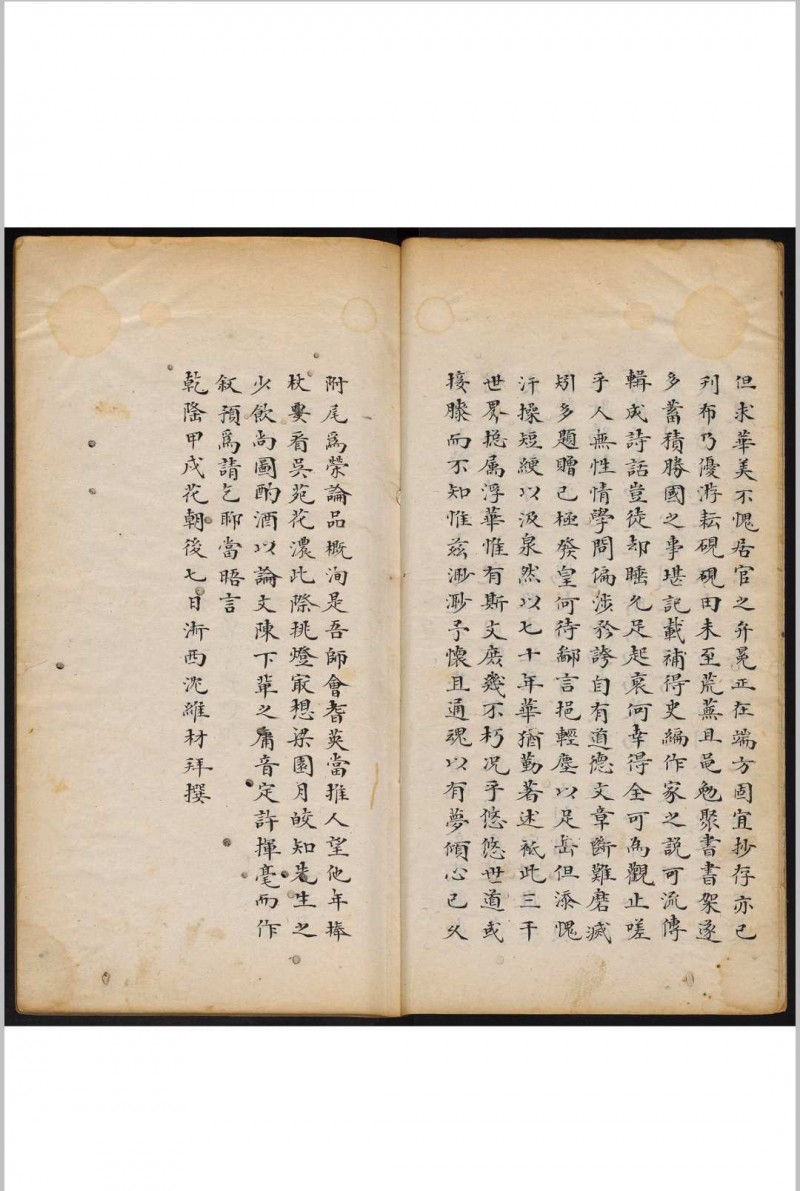 但求華美不愧居官之弁冕正在端方固宜抄存亦已
列布乃優游耘硯硯田未至荒蕪且黽勉聚書書架遂
多蓄積勝國之事堪記載補得史編作家之說可流傳
輯成詩話豈徒却睡允足起衰何幸得全可為觀止嗟
乎人無性情學問偏涉矜誇自有道德文章斷難磨滅
矧多題贈已極發皇何待鄙言挹輕塵以足岳但添愧
汗操短綆以汲泉然以七十年華猶勤著述袛此三千
世界掟属浮華惟有斯文庶幾不朽况乎悠悠世道或
接膝而不知惟茲渺渺予懷且通魂以有夢傾心已久
附尾爲榮論品概洵是吾師會耆英當推人望他年捧
杖要看吳苑花濃此際挑燈㝡想梁園月皎知先生之
少飲尚圖酌酒以論文陳下輩之庸音定許揮毫而作
叙預爲請乞聊當晤言
乾隆甲戌花朝後七日浙西沈維材拜撰